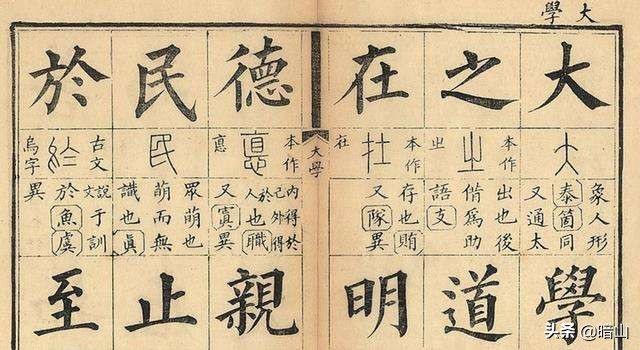 大學
大
象人形
泰箇同
又通太
學
之
本作
㞢
出也後
偕為助
語支
道
在
本作
在
存也賄
又隊異
明
大學
德
本作
悳
內得於
己外得
於人也職
又寘異
親
民
眾萌也
萌而無
識也真
止
於
古文
烏字
說文于訓
於魚虞
異
至
头条 @暗山